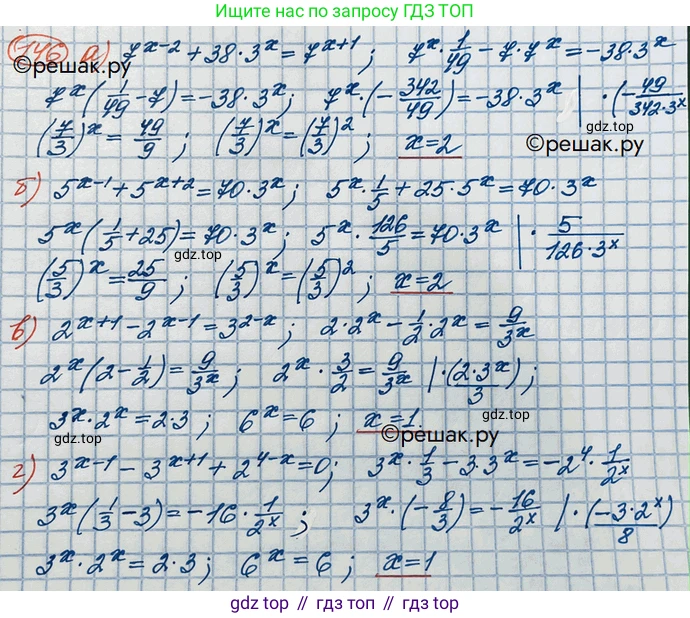 Ищите нас по запросу ГДЗ ТОП
146 а) 7^(x-2) + 38·3^x = 7^(x+1); 7^x · 1/49 - 7·7^x = -38·3^x
©reшак.ру
7^x (1/49 - 7) = -38·3^x; 7^x · (-342/49) = -38·3^x | ·(-49/(342·3^x)
gdz.top
(7/3)^x = 49/9; (7/3)^x = (7/3)^2; x=2
©reшак.ру
б) 5^(x-1) + 5^(x+2) = 70·3^x; 5^x · 1/5 + 25·5^x = 70·3^x
5^x (1/5 + 25) = 70·3^x; 5^x · 126/5 = 70·3^x | · 5/(126·3^x)
gdz.top
(5/3)^x = 25/9; (5/3)^x = (5/3)^2; x=2
в) 2^(x+1) - 2^(x-1) = 3^(2-x); 2·2^x - 1/2·2^x = 9/3^x
2^x (2 - 1/2) = 9/3^x; 2^x · 3/2 = 9/3^x | ·(2·3^x)/3;
3^x · 2^x = 2·3; 6^x = 6; x=1
gdz.top
©reшак.ру
г) 3^(x-1) - 3^(x+1) + 2^(4-x) = 0; 3^x · 1/3 - 3·3^x = -2^4 · 1/2^x
3^x (1/3 - 3) = -16 · 1/2^x; 3^x · (-8/3) = -16/2^x | ·(-3·2^x)/8
3^x · 2^x = 2·3; 6^x = 6; x=1
gdz.top
gdz top // гдз топ // gdz.top